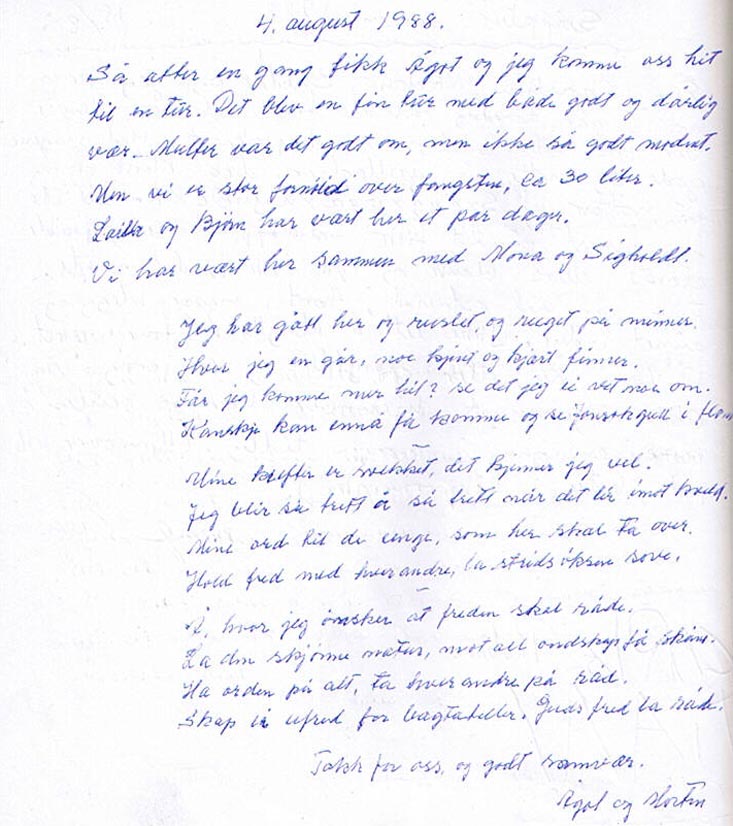 4. august 1988.
Så atter en gang fikk Ågot og jeg komme oss hit
til en tur. Det blev en fin tur med både godt og dårlig
vær. Multer var det godt om, men ikke så godt modent.
Men vi er stor fornöid over fangsten, ca 30 liter.
Laila og Björn har vært her et par dager.
Vi har vært her sammen med Mona og Sigholdt.
Jeg har gått her og ruslet, og meget på minner.
Hvor jeg en går, noe kjent og kjært finner.
Får jeg komme mer hit? se det jeg ei vet noe om.
Kanskje kan ennå få komme og se Jonsokgull i flom
Mine krefter er svekket, det kjenner jeg vel.
Jeg blir så trett å så trett når det lir imot kveld.
Mine ord til de unge, som her skal ta over.
Hold fred med hverandre, la stridsöksen sove.
Å, hvor jeg önsker at freden skal råde.
La den skjönne natur, mot all ondskap få skåne.
Ha orden på alt, ta hverandre på råd.
Skap ei ufred for bagateller. Guds fred la råde.
Takk for oss, og godt samvær.
Ågot og Morten